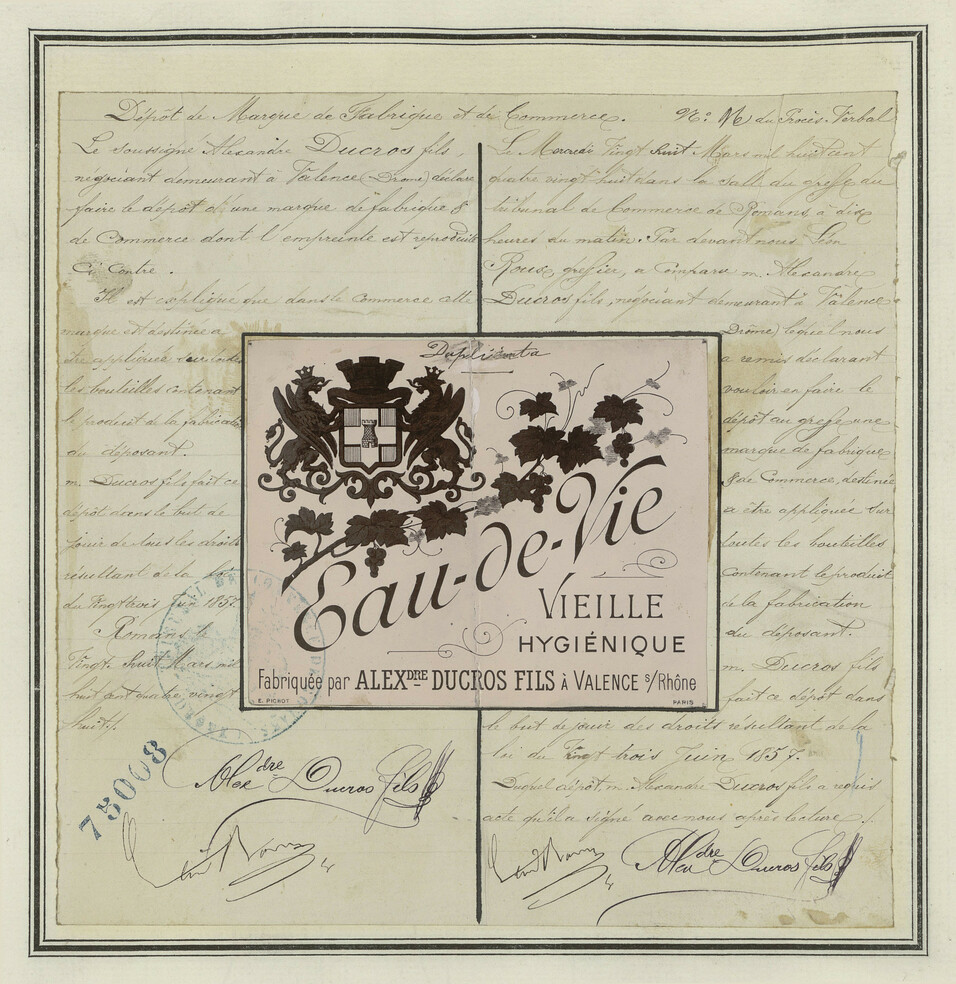 Dépôt de Marque de Fabrique et de Commerce.
Le soussigné Alexandre Ducros fils,
négociant demeurant à Valence (Drôme) déclare
faire le dépôt d'une marque de fabrique &
de Commerce dont l'empreinte est reproduite
Ci contre.
Il est expliqué que dans le Commerce cette
marque est destinée a
être appliquée sur toutes
les bouteilles contenant
le produit de la fabrication
du déposant.
m. Ducros fils fait ce
dépôt dans le but de
jouir de tous les droits
résultant de la loi
du Vingt trois Juin 1857.
Romans le
Vingt huit Mars mil
huit cent quatre vingt
huit.
Alexdre Ducros fils
75008
N°: du Procès-Verbal
Le Mercredi Vingt huit Mars mil huit cent
quatre vingt huit dans la salle du greffe du
tribunal de Commerce de Romans, à dix
heures du matin. Par devant nous Léon
Roux, greffier, a Comparu m. Alexandre
Ducros fils, négociant demeurant à Valence
(Drôme) lequel nous
a remis déclarant
vouloir en faire le
dépôt au greffe une
marque de fabrique
& de Commerce, destinée
a être appliquée sur
toutes les bouteilles
Contenant le produit
de la fabrication
du déposant.
m. Ducros fils
fait ce dépôt dans
le but de jouir des droits résultant de la
loi du Vingt trois Juin 1857.
Duquel dépôt m. Alexandre Ducros fils a requis
acte qu'il a signé avec nous après lecture.
Alexdre Ducros fils
Duplicata
Eau-de-Vie
VIEILLE
HYGIÉNIQUE
Fabriquée par ALEXDRE DUCROS FILS à VALENCE s/Rhône
E. PICHOT
PARIS